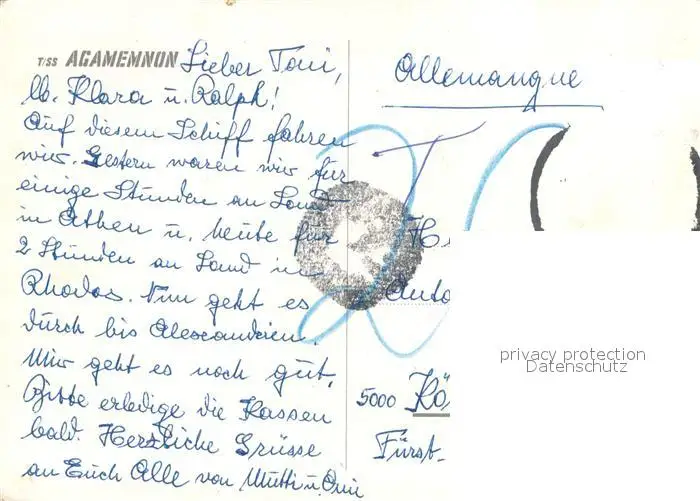 T/SS AGAMEMNON Lieber Toni,
lb. Klara u. Ralph!
Auf diesem Schiff fahren
wir. Gestern waren wir für
einige Stunden an Land
in Athen u. heute für
2 Stunden an Land in
Rhodos. Nun geht es
durch bis Alexandrien.
Mir geht es noch gut.
Bitte erledige die Kassen
bald. Herzliche Grüsse
an Euch Alle von Mutti u.
Allemangne
T
H
Anto
5000 Kö
Fürst-
privacy protection
Datenschutz